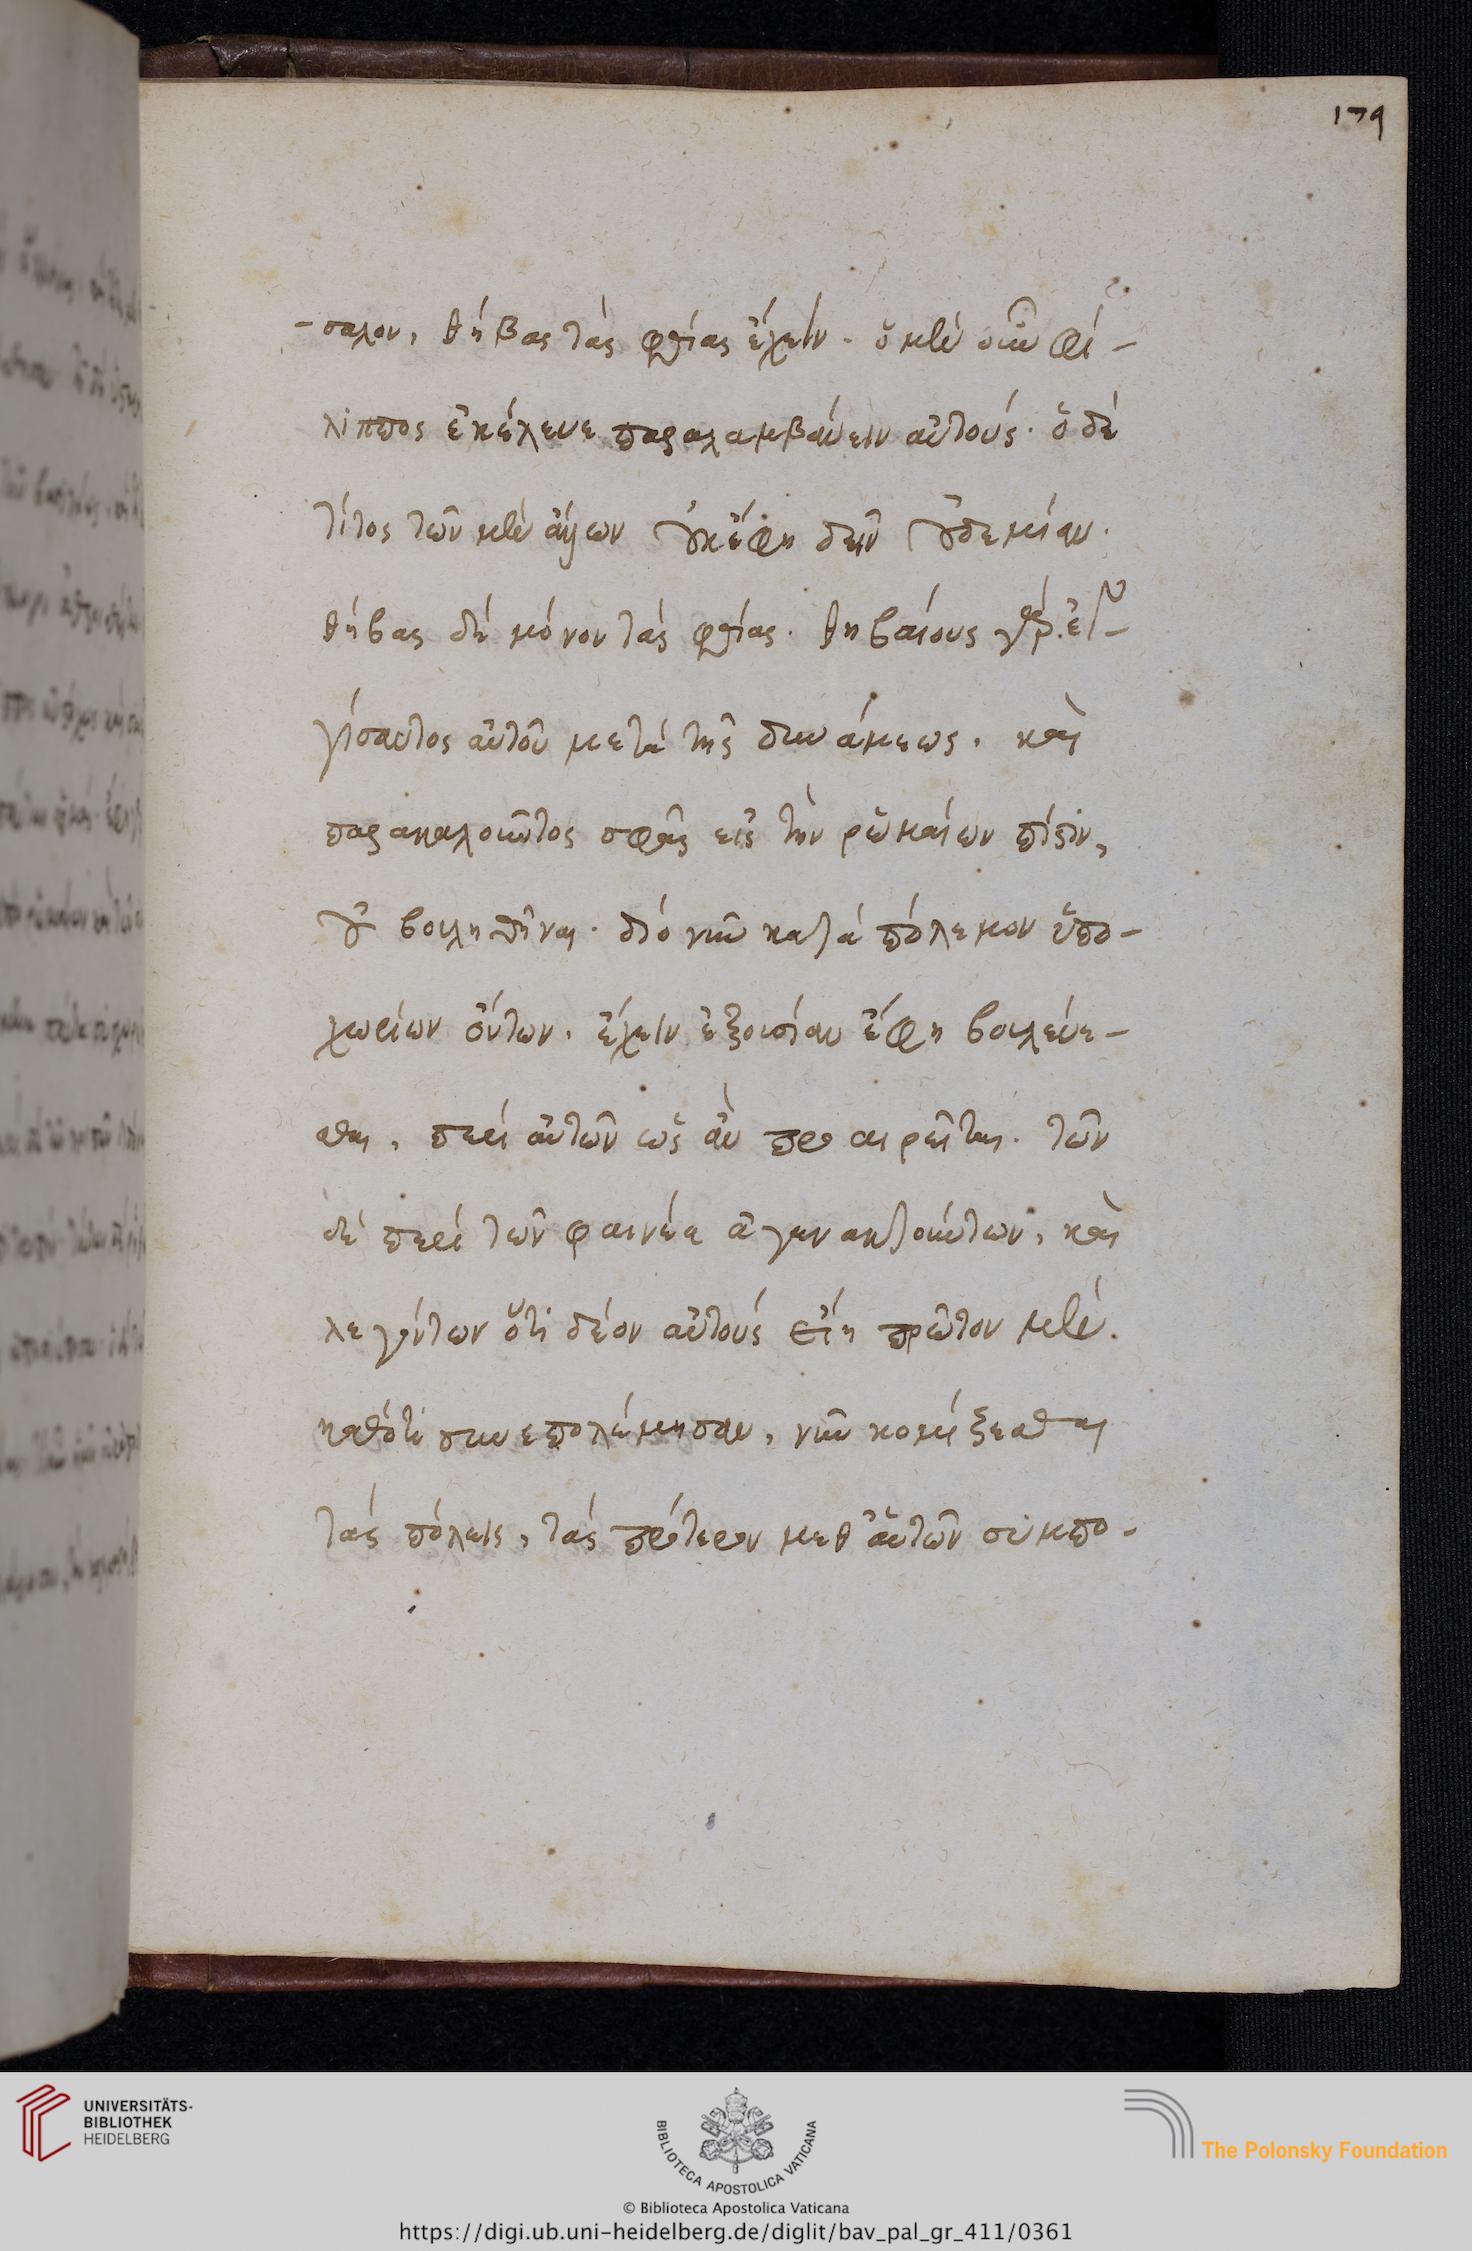 179
-σαλον, θήβας τὰς φθίας ἔχειν. ὁ μὲν οὖν φί-
λιππος ἐκέλευε παραλαμβάνειν αὐτούς. ὁ δὲ
τίτος τῶν μὲν ἄλλων οὐκ ἔφη δεῖν οὐδεμίαν.
θήβας δὲ μόνον τὰς φθίας. θηβαίους γὰρ ἐγ-
γίσαντος αὐτοῦ μετὰ τῆς δυνάμεως, καὶ
παρακαλοῦντος σφᾶς εἰς τὴν ῥωμαίων πίστιν,
οὐ βουληθῆναι. διὸ νῦν κατὰ πόλεμον ὑπο-
χωρίων ὄντων, ἔχειν ἐξουσίαν ἔφη βουλεύε-
σθαι, περὶ αὐτῶν ὡς ἂν προαιρεῖται. τῶν
δὲ περὶ τῶν φαινέα ἀγανακτούντων, καὶ
λεγόντων ὅτι δέον αὐτοὺς εἴη πρῶτον μὲν.
καθότι συνεπολέμησαν, νῦν κομίξεσθαι
τὰς πόλεις, τὰς πρότερον μεθ αὑτῶν συμπο-
UNIVERSITÄTS-
BIBLIOTHEK
HEIDELBERG
BIBLIOTECA APOSTOLICA VATICANA
The Polonsky Foundation
© Biblioteca Apostolica Vaticana
https://digi.ub.uni-heidelberg.de/diglit/bav_pal_gr_411/0361